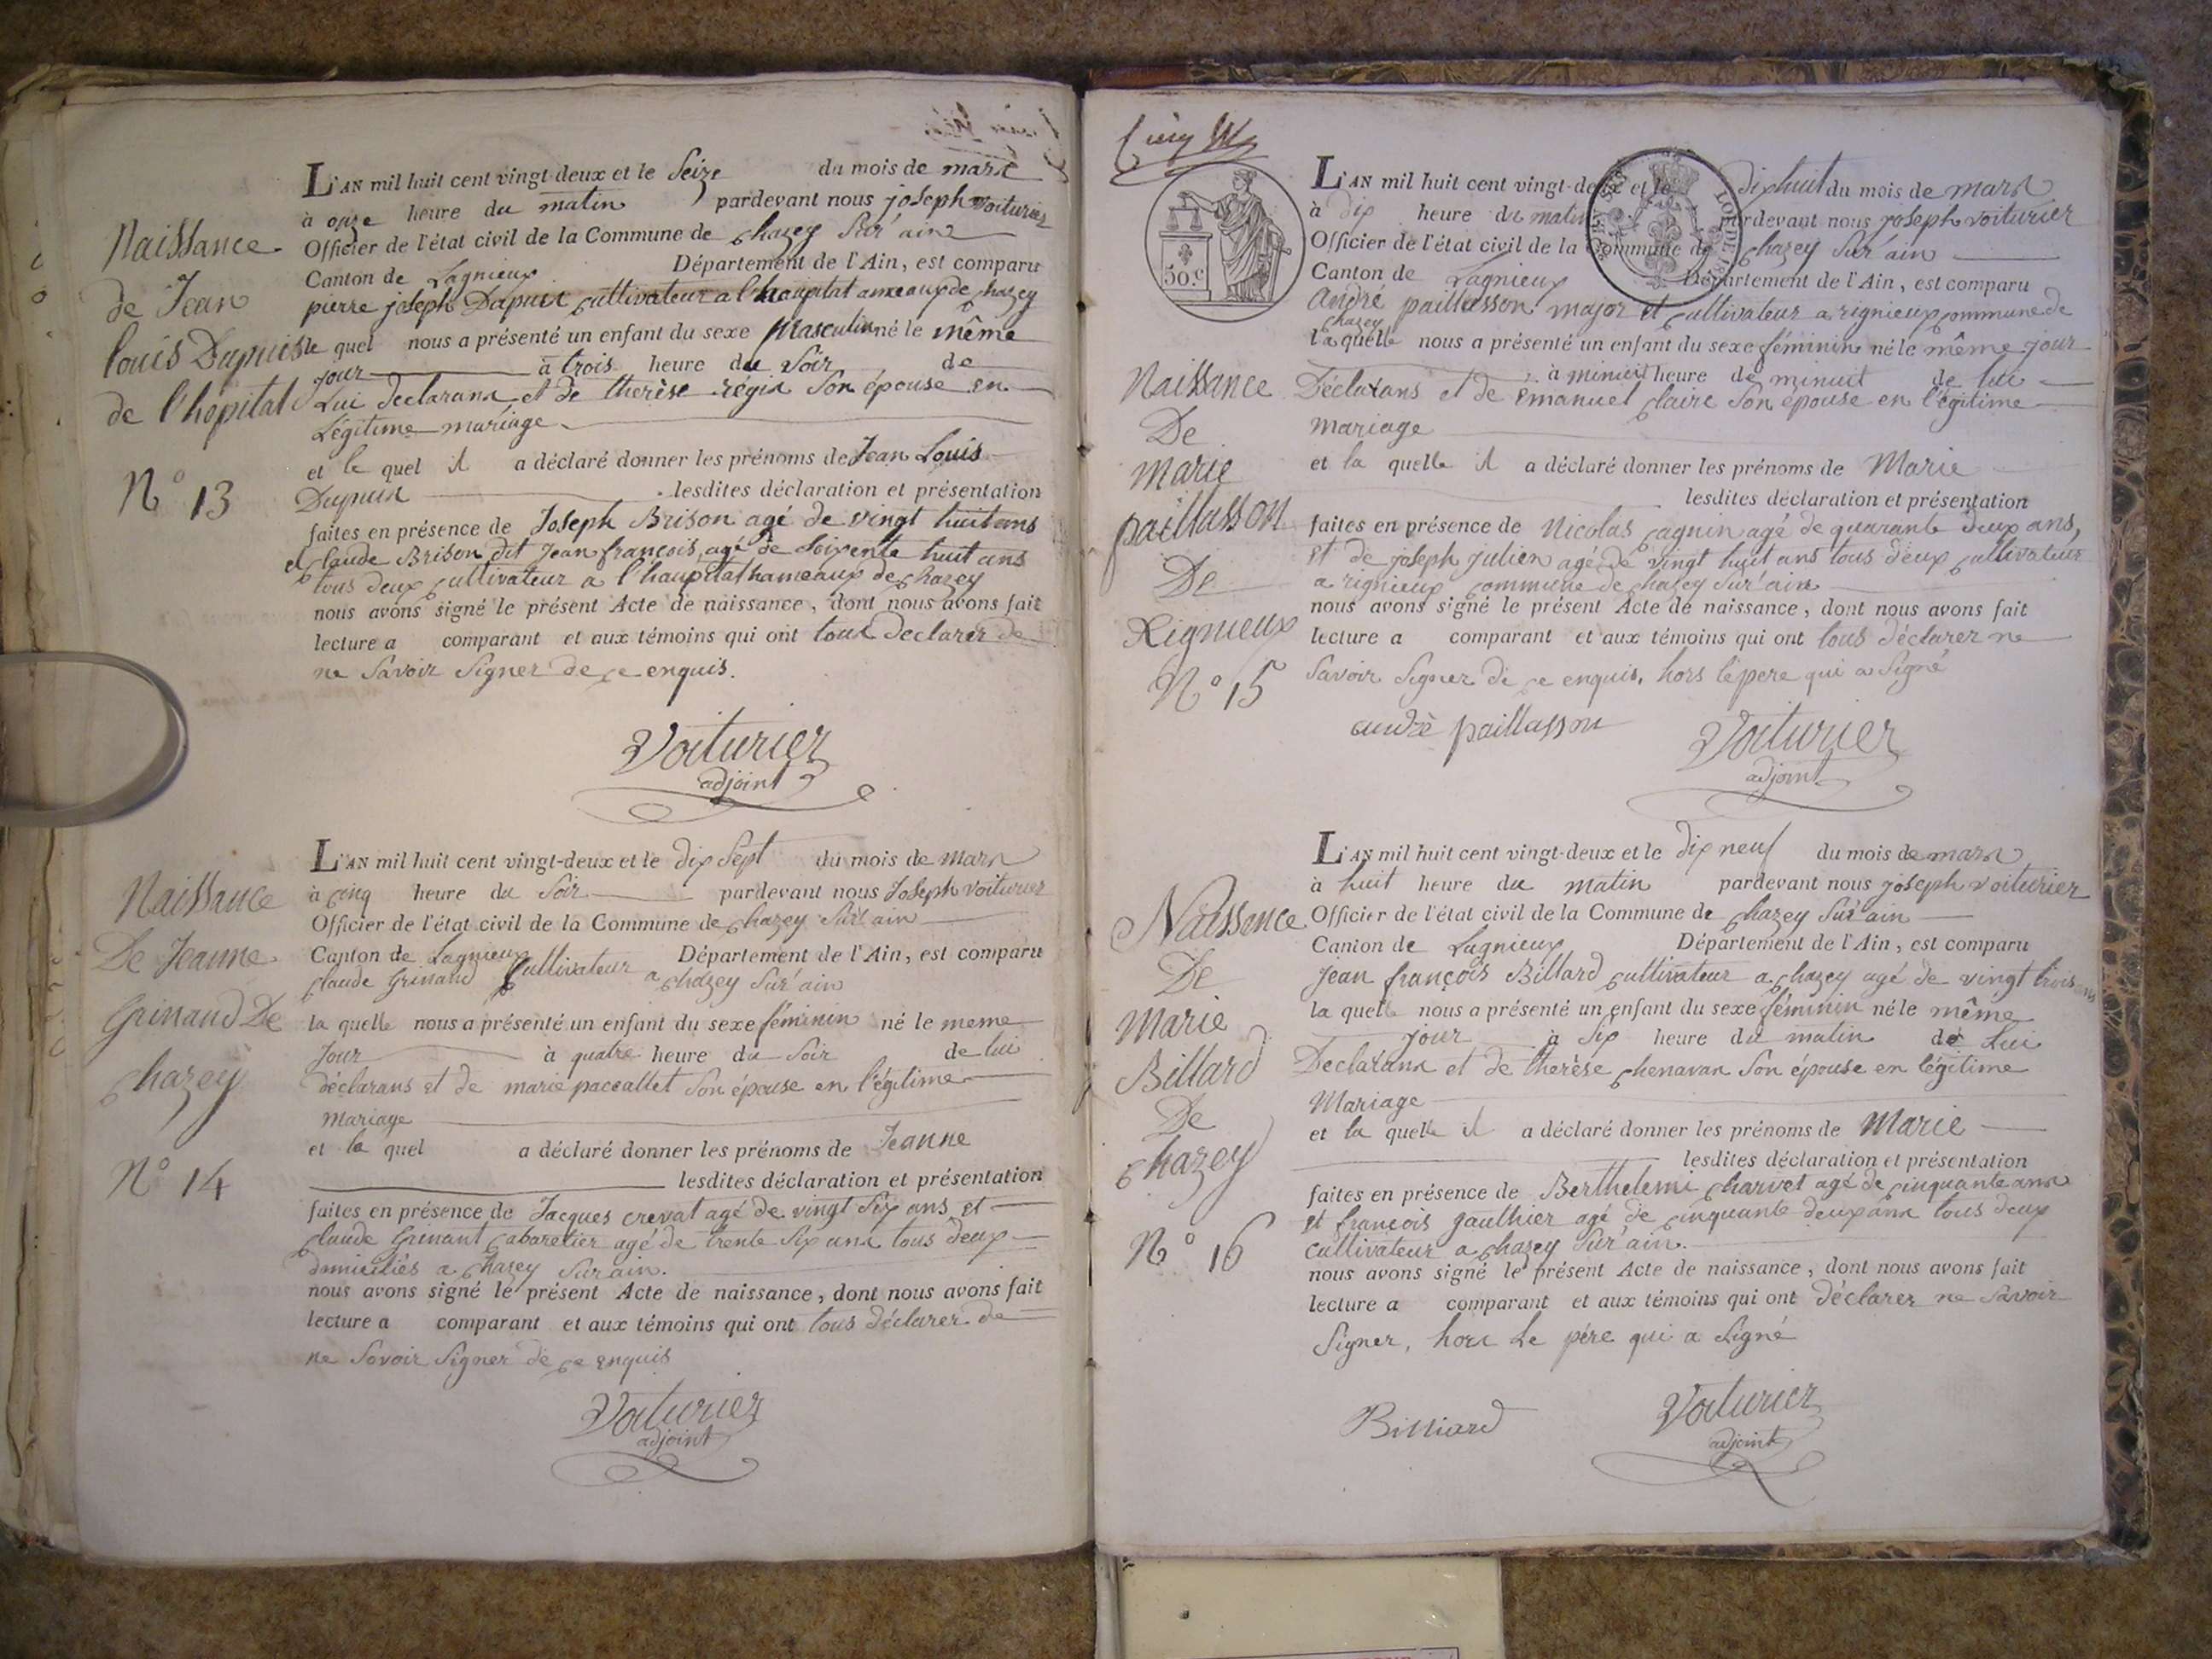 Naissance
de Jean
louis Dupuis
de l'hôpital
N° 13
L'AN mil huit cent vingt-deux et le Seize du mois de mars
à onze heure du matin pardevant nous joseph voiturier
Officier de l'état civil de la Commune de chazey Sur ain
Canton de Lagnieux Département de l'Ain, est comparu
pierre joseph Dupuis cultivateur a l'haupital ameaux de chazey
le quel nous a présenté un enfant du sexe Masculin né le même
jour à trois heure du Soir de
Lui declarans et de therèse régis Son épouse en
Légitime mariage
et le quel il a déclaré donner les prénoms de Jean Louis
Dupuis lesdites déclaration et présentation
faites en présence de Joseph Brison agé de vingt huit ans
et claude Brison dit Jean françois, agé de Soixente huit ans
tous deux cultivateur a l'haupital hameaux de chazey
nous avons signé le présent Acte de naissance, dont nous avons fait
lecture a comparant et aux témoins qui ont tous declarer de
ne Savoir Signer de ce enquis.
Voiturier
adjoint
Naissance
De Jeanne
Grinand De
chazey
N° 14
L'AN mil huit cent vingt-deux et le dix Sept du mois de mars
à cinq heure du Soir pardevant nous Joseph voiturier
Officier de l'état civil de la Commune de chazey Sur ain
Canton de Lagnieux Département de l'Ain, est comparu
claude Grinand Cultivateur a chazey Sur ain
la quelle nous a présenté un enfant du sexe féminin né le meme
Jour à quatre heure du Soir de lui
déclarans et de marie paccallet Son épouse en l'égitime
Mariage
et la quel a déclaré donner les prénoms de Jeanne
lesdites déclaration et présentation
faites en présence de Jacques crevat agé de vingt Six ans et
claude Grinant cabaretier agé de trente Six ans tous deux
domiciliés a chazey Sur ain.
nous avons signé le présent Acte de naissance, dont nous avons fait
lecture a comparant et aux témoins qui ont tous déclarer de
ne Savoir Signer de ce enquis
Voiturier
adjoint
50.c
Naissance
De
Marie
paillasson
De
Rignieux
N° 15
L'AN mil huit cent vingt-deux et le dix huit du mois de mars
à dix heure du matin pardevant nous joseph voiturier
Officier de l'état civil de la Commune de chazey Sur ain
Canton de Lagnieux Département de l'Ain, est comparu
André paillasson major et cultivateur a rignieux commune de
chazey
la quelle nous a présenté un enfant du sexe féminin né le même jour
à minuit heure de minuit de lui
Déclarans et de Emanuel claire Son épouse en l'égitime
mariage
et la quelle il a déclaré donner les prénoms de Marie
lesdites déclaration et présentation
faites en présence de Nicolas cagnin agé de quarante deux ans,
et de joseph julien agé de vingt huit ans tous deux cultivateur
a rignieux commune de chazey Sur ain
nous avons signé le présent Acte de naissance, dont nous avons fait
lecture a comparant et aux témoins qui ont tous déclarer ne
Savoir Signer de ce enquis, hors le pere qui a Signé
andrè paillasson
Voiturier
adjoint
Naissance
De
Marie
Billard
De
chazey
N° 16
L'AN mil huit cent vingt-deux et le dix neuf du mois de mars
à huit heure du matin pardevant nous joseph voiturier
Officier de l'état civil de la Commune de chazey Sur ain
Canton de Lagnieux Département de l'Ain, est comparu
Jean françois Billard cultivateur a chazey agé de vingt trois ans
la quelle nous a présenté un enfant du sexe féminin né le même
jour à Six heure du matin de Lui
Declarans et de therèse chenavan Son épouse en légitime
Mariage
et la quelle il a déclaré donner les prénoms de Marie
lesdites déclaration et présentation
faites en présence de Berthelemi charvet agé de cinquante ans
et francois gauthier agé de cinquante deux ans tous deux
cultivateur a chazey Sur ain.
nous avons signé le présent Acte de naissance, dont nous avons fait
lecture a comparant et aux témoins qui ont déclarer ne Savoir
Signer, hors Le père qui a Signé
Billiard
Voiturier
adjoint